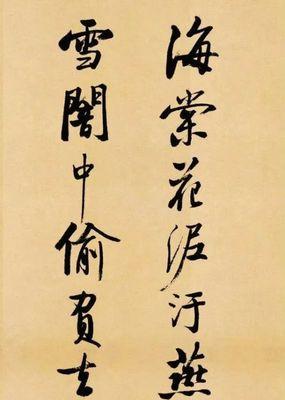 海棠花泥汙燕
雪闇中偷負去